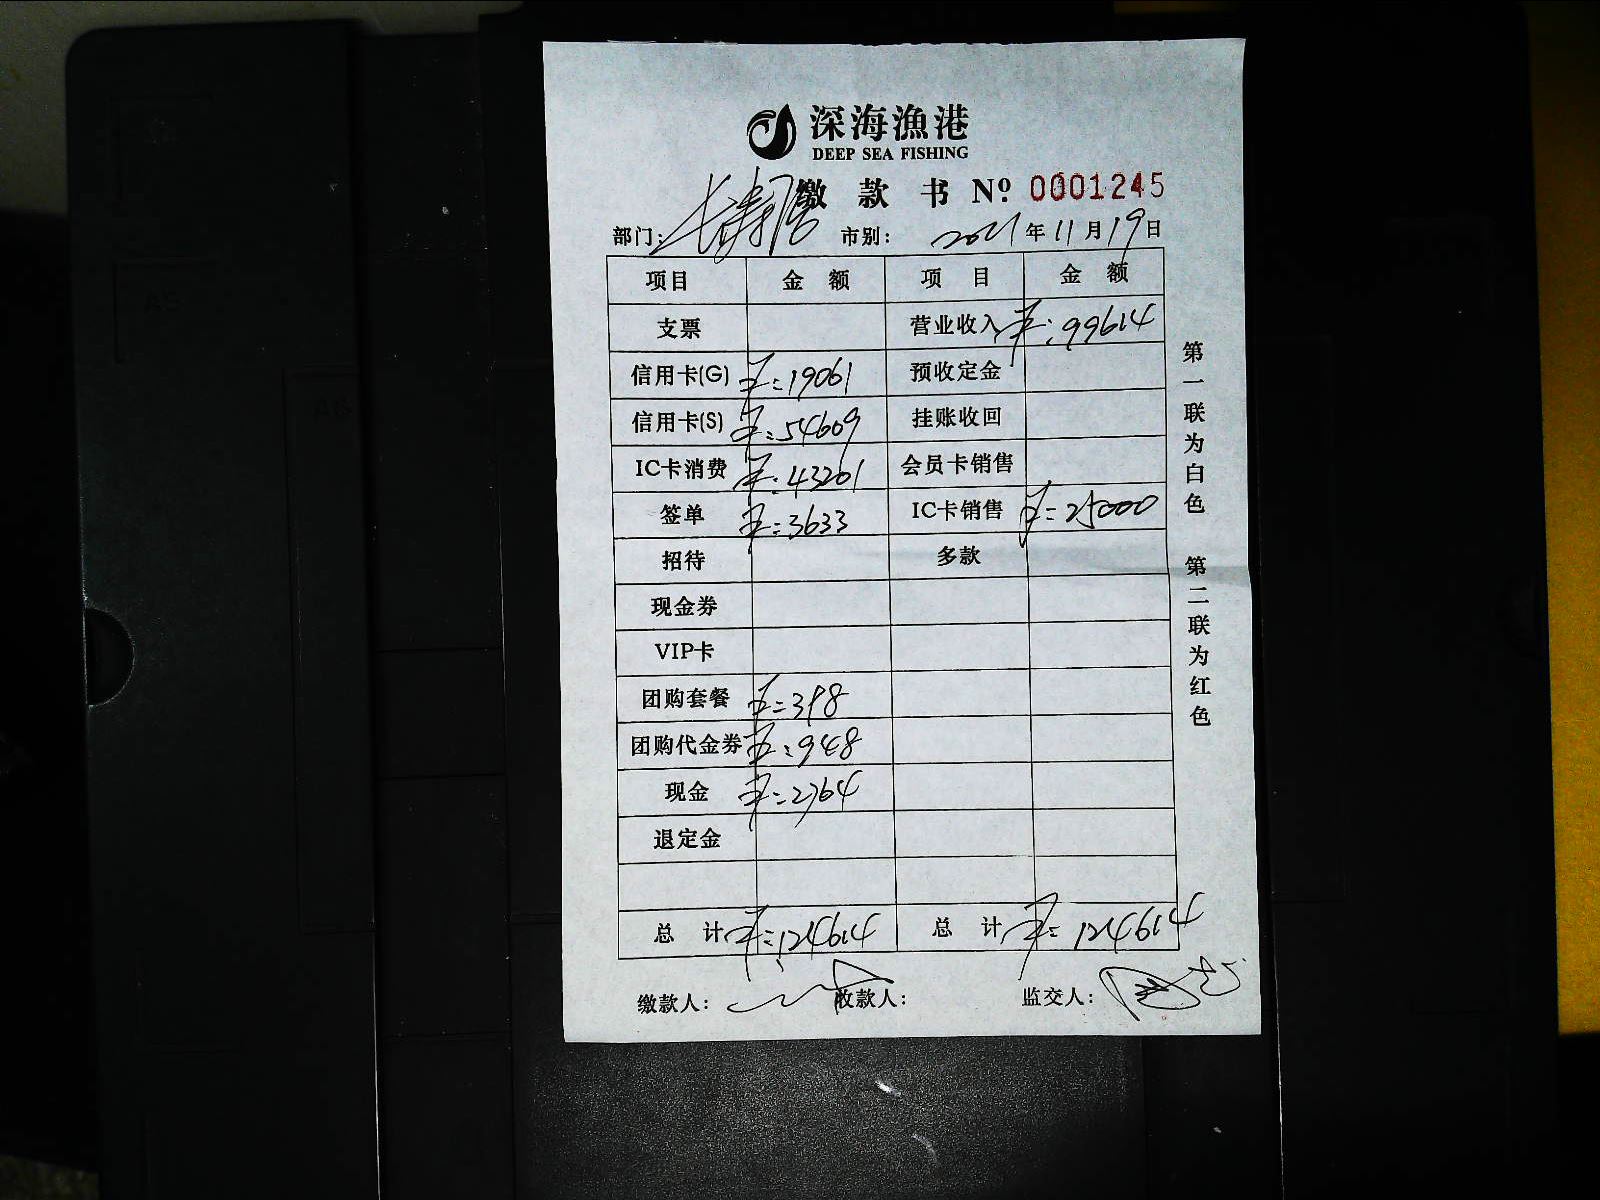 深海渔港
DEEP SEA FISHING
缴款书 Nº 0001245
部门: 市别: 2021年11月19日
项目 金额 项目 金额
支票 营业收入 ¥:99614
信用卡(G) ¥:19061 预收定金
信用卡(S) ¥:54609 挂账收回
IC卡消费 ¥:43201 会员卡销售
签单 ¥:3633 IC卡销售 ¥:25000
招待 多款
现金券
VIP卡
团购套餐 ¥:398
团购代金券 ¥:948
现金 ¥:2764
退定金
总计 ¥:124614 总计 ¥:124614
缴款人: 收款人: 监交人:
第一联为白色 第二联为红色